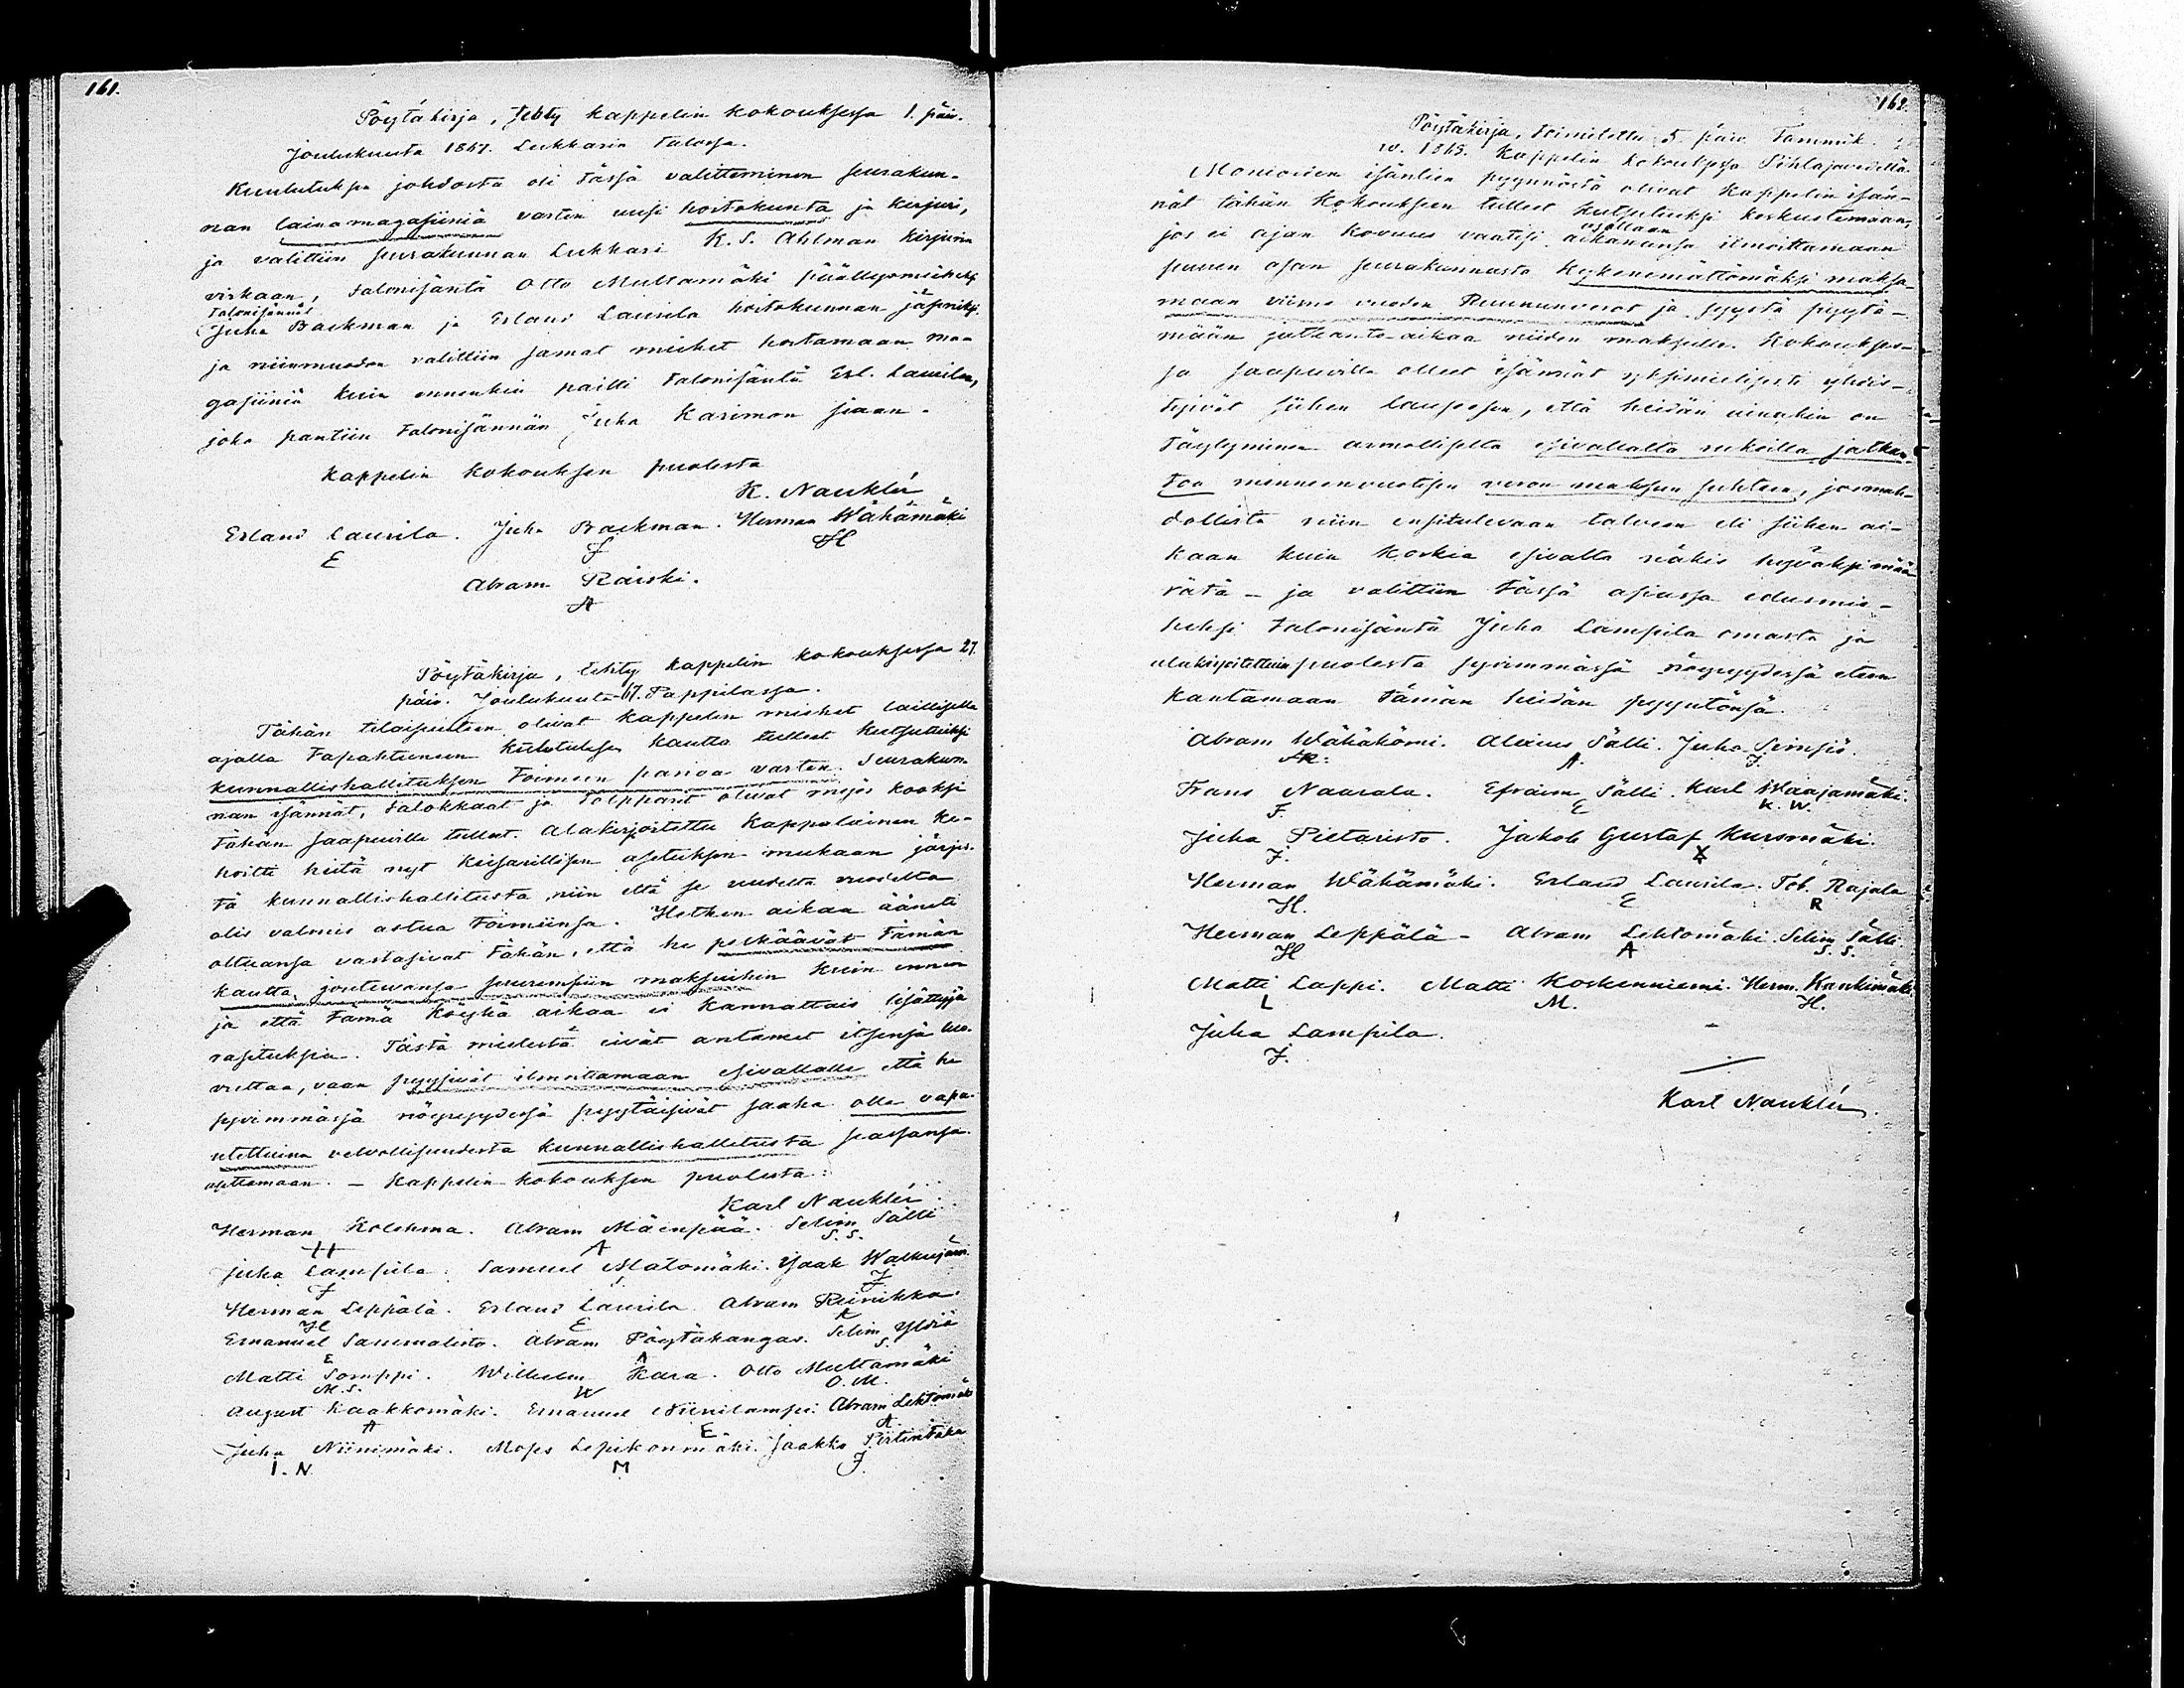 161.
Pöytäkirja, tehty kappelin kokouksessa 1. päiv.
Joulukuuta 1867. Lukkarin talossa.
Kuulutuksen johdosta oli tässä valitteminen seurakun-
nan lainamagasiiniä varten uusi hoitokunta ja kirjuri,
ja valittiin seurakunnan Lukkari K. S. Ahlman kirjurin
virkaan, talonisäntä Otto Multamäki päällysmieheksi
Talonisännät
Juha Backman ja Erland Laurila hoitokunnan jäseniksi
ja niinmuodon valittiin samat miehet hoitamaan ma-
gasiiniä kuin ennenkin paitti talonisäntä Erl. Laurila,
joka pantiin talonisännän Juha Karimon siaan.
Kappelin kokouksen puolesta
K. Nauklér
Erland Laurila. Juha Backman. Herman Wähämäki
E J H
Abram Räiski.
A
Pöytäkirja, tehty kappelin kokouksessa 27.
päiv. Joulukuuta 67. Pappilassa.
Tähän tilaisuuteen olivat kappelin miehet laillisella
ajalla tapahtuneen kuulutuksen kautta tulleet kutsutuiksi
kunnallishallituksen toimeen panoa varten. Seurakun-
nan isännät, talokkaat ja torpparit olivat myös kooksi
tähän saapuville tulleet. Alakirjoitettu kappalainen ke-
hoitti heitä nyt keisarillisen asetuksen mukaan järjes-
tä kunnallishallitusta, niin että se uudelta vuodelta
olis valmis astua toimiinsa. Hetken aikaa ääneti
oltuansa vastasivat tähän, että he pelkäävät tämän
kautta joutuvansa suurempiin maksuihin kuin ennen
ja että tämä köyhä aikaa ei kannattais lisättyjä
rasituksia. Tästä mielestä eivät antaneet itsensä luo-
vuttaa, vaan pyysivät ilmoittamaan esivallalle että he
syvimmässä nöyryydessä pyytäisivät saada olla vapa-
utettuina velvollisuudesta kunnallishallitusta seassansa
asettamaan. - Kappelin kokouksen puolesta:
Karl Nauklér.
Herman Kolehma. Abram Mäenpää. Selim Sälli
H A S.S.
Juha Lampila. Samuel Matomäki. Isaak Walkujärvi
J J
Herman Leppälä. Erland Laurila. Abram Reinikka.
H E A
Emanuel Sammalisto. Abram Pöytäkangas. Selim Yliriä
E A S.
Matti Somppi. Wilhelm Kara. Otto Multamäki
M.S. W O.M.
August Kaakkomäki. Emanuel Niinilampi. Abram Lehtomäki
A E A
Juha Niinimäki. Moses Lepikonmäki. Jaakko Pirtintaka
I.N. M J.
162.
Pöytäkirja, toimitettu 5. päiv. Tammik.
w. 1868. Kappelin kokouksessa Pihlajavedellä.
Monioiden isäntien pyynnöstä olivat kappelin isän-
nät tähän kokoukseen tulleet kutsutuiksi keskustemaan,
jos ei ajan kovuus vaatisi aikananza ilmoittamaan
suuren osan seurakunnasta kykenemättömäksi maksa-
maan viime vuoden Ruununverot ja syystä pyytä-
mään jatkanto-aikaa niiden maksulle. Kokoukses-
sa saapuvilla olleet isännät yksimielisesti yhdis-
tyivät siihen lauseesen, että heidän ainakin on
täytyminen armolliselta esivallalta rukoilla jatkan-
toa menneenvuotisen veron maksun suhteen, jos mah-
dollista niin ensitulevaan talveen eli siihen ai-
kaan kuin korkia esivalta näkis hyväksi mää-
rätä - ja valittiin tässä asiassa edusmie-
heksi talonisäntä Juha Lampila omasta ja
alakirjoitettuin puolesta syvimmässä nöyryydessä eteen
kantamaan tämän heidän pyyntönsä.
Abram Wähäkömi. Alexius Sälli. Juha Seinsiö.
A. J.
Frans Naarala. Efraim Sälli. Karl Waajamäki.
F. E K.W.
Juha Pietaristo. Jakob Gustaf Kuromäki.
J. X
Herman Wähämäki. Erland Laurila. Tob. Rajala
H. E R
Herman Leppälä - Abram Lehtomäki. Selim Sälli.
H A S.S.
Matti Lappi. Matti Koskenniemi. Herm. Kankimäki.
L M. H.
Juha Lampila.
J.
Karl Nauklér.